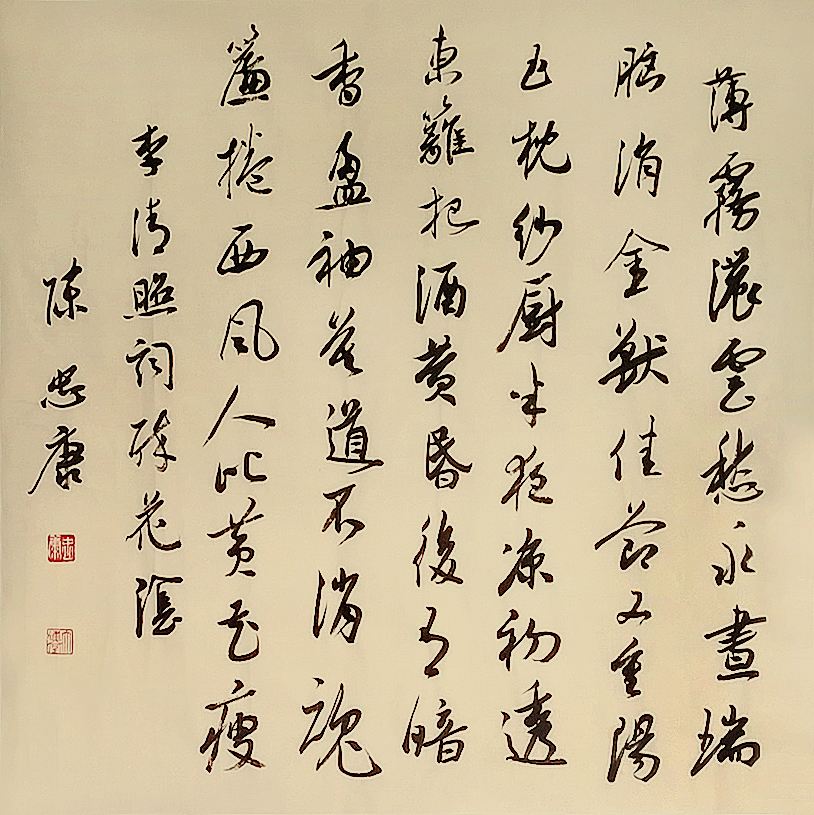 薄霧濃雲愁永晝瑞
腦消金獸佳節又重陽
玉枕紗厨半夜涼初透
東籬把酒黄昏後有暗
香盈袖莫道不消魂
簾捲西風人比黄花瘦
李清照詞醉花陰
陳忠康